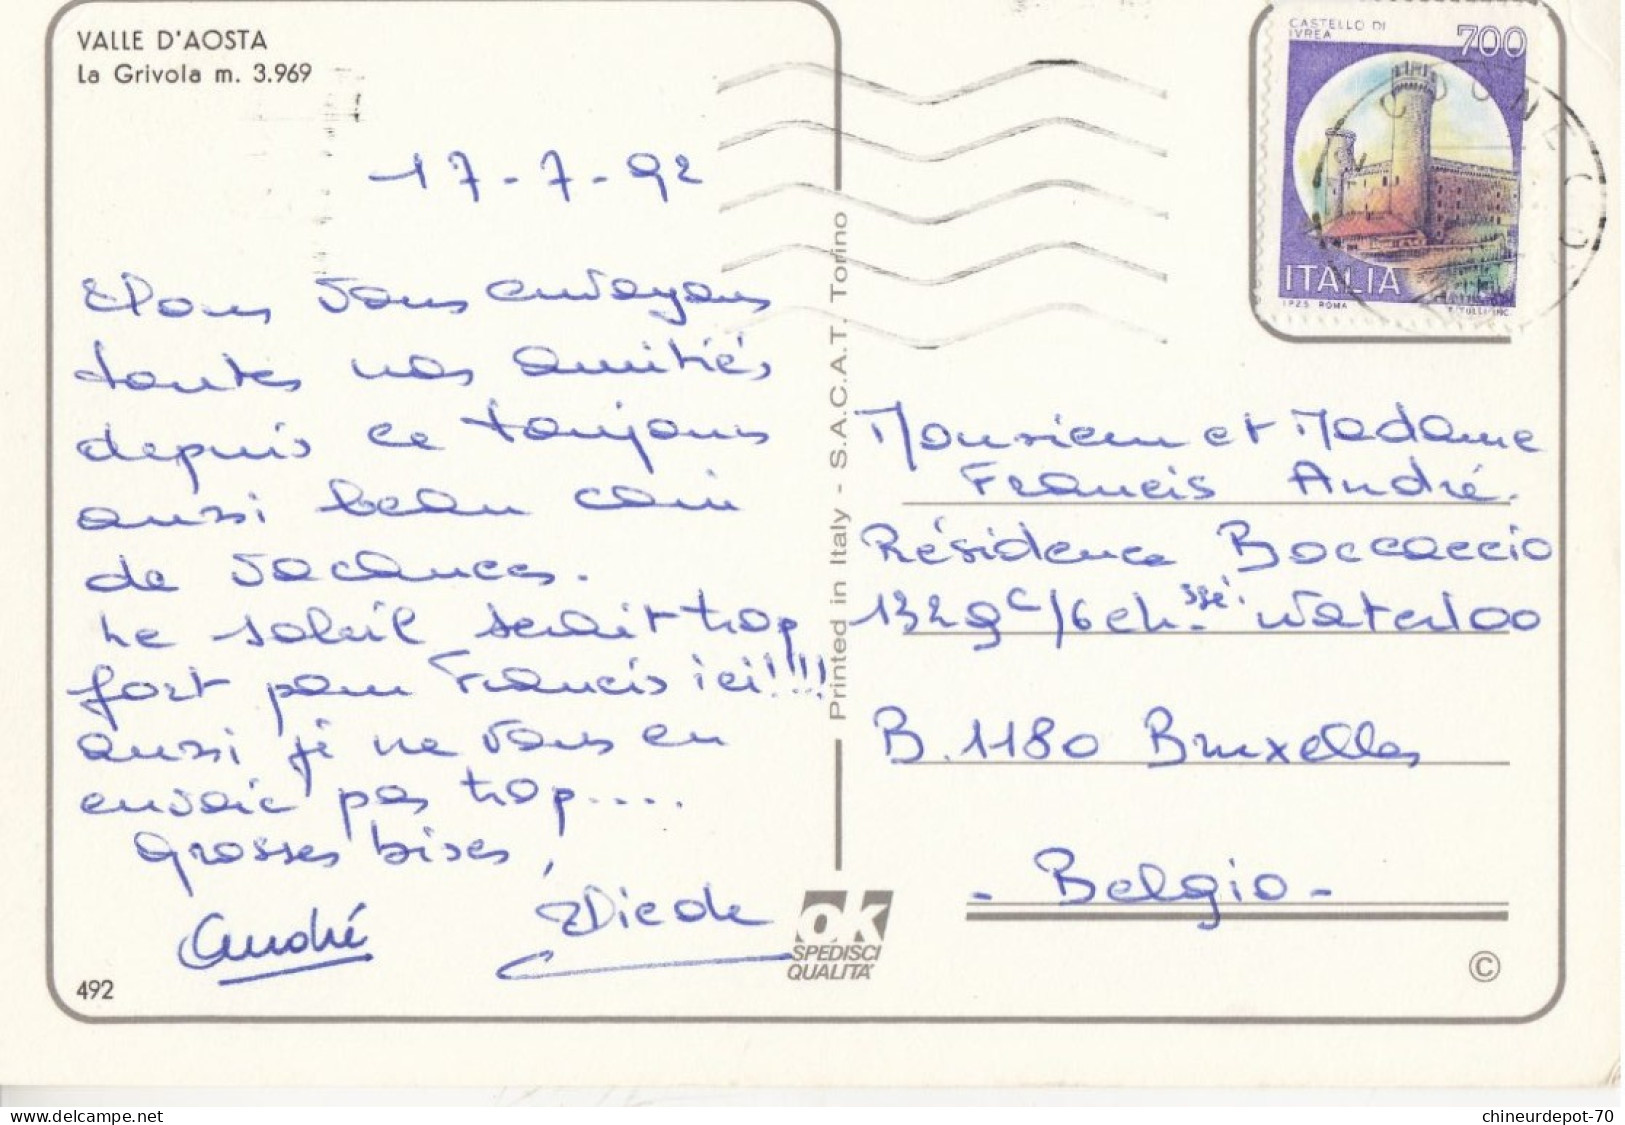 VALLE D'AOSTA
La Grivola m. 3.969
17-7-92
Nous vous envoyons
toutes nos amitiés
depuis ce toujours
aussi beau coin
de vacances.
Le soleil serait trop
fort pour Francis ici!!!!
aussi je ne vous en
envoie pas trop.....
Grosses bises,
André
492
Printed in Italy - S.A.C.A.T. Torino
OK
SPEDISCI
QUALITA'
CASTELLO DI
IVREA
700
ITALIA
I.P.Z.S. ROMA
Monsieur et Madame
Francis André.
Résidence Boccaccio
1329c/6 ch.ssé. Waterloo
B.1180 Bruxelles
- Belgio -
©
delcampe.net
chineurdepot-70